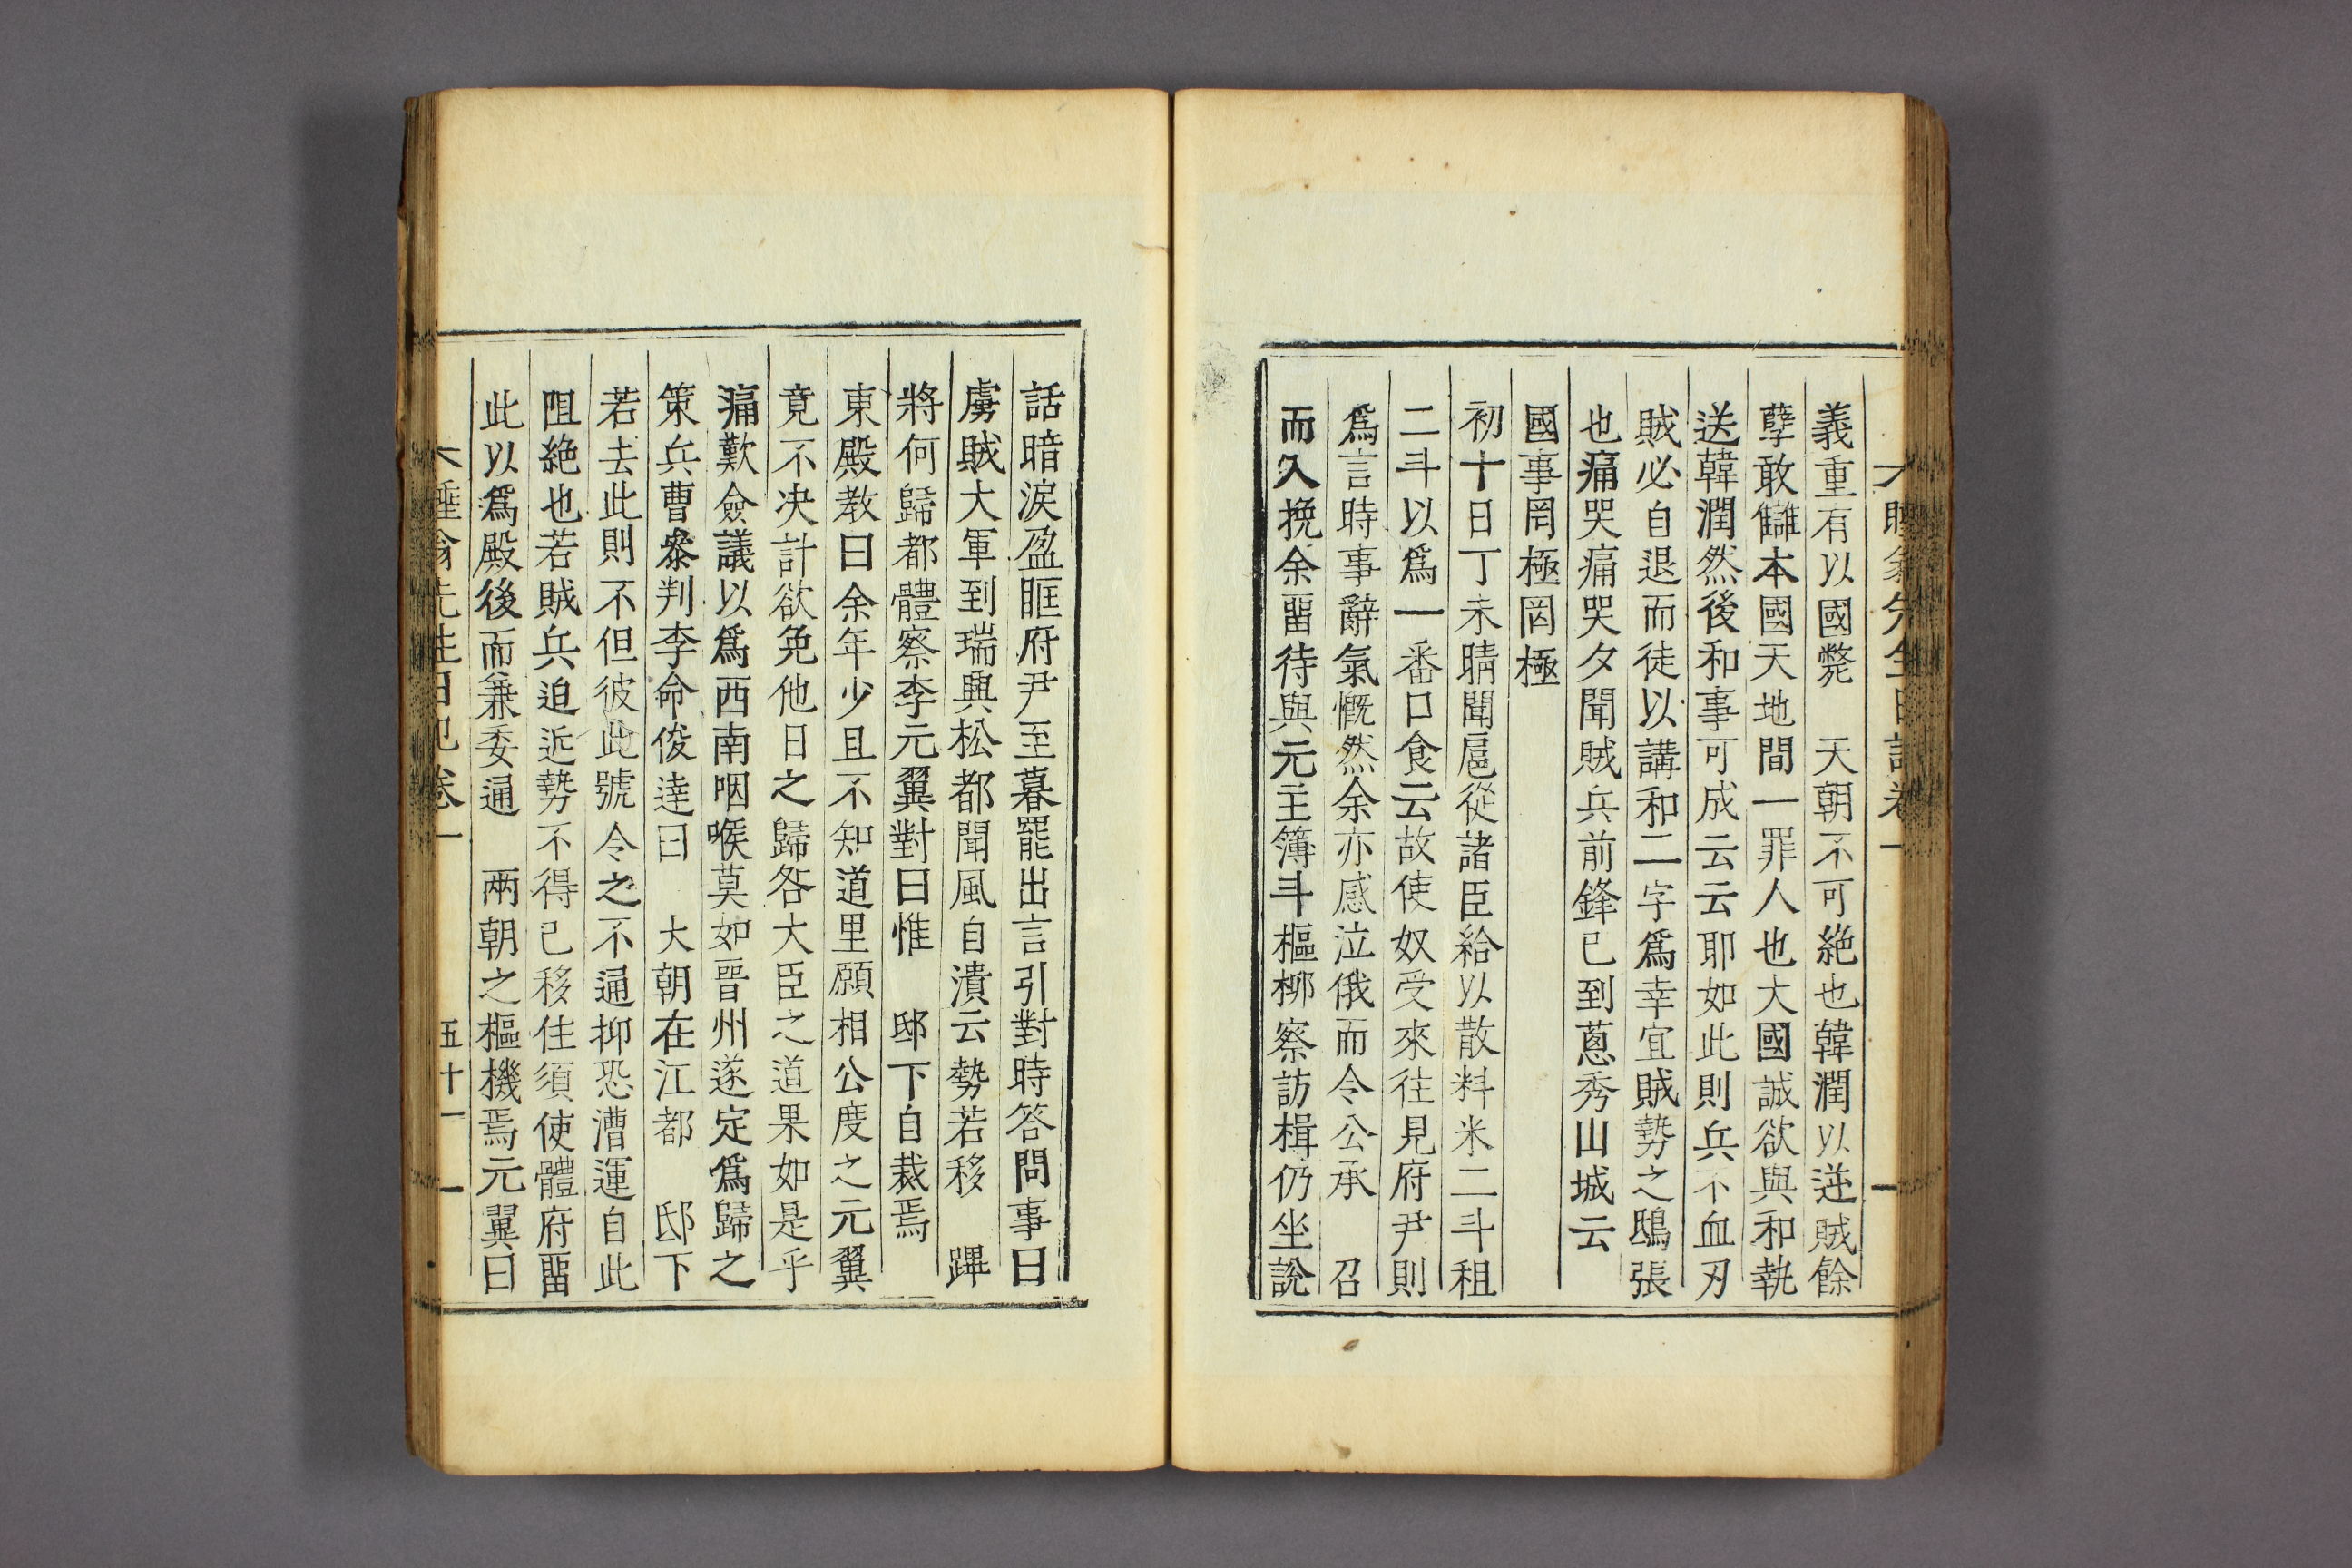 義重有以國斃　天朝不可絶也韓潤以逆賊餘
孽敢讎本國天地間一罪人也大國誠欲與和執
送韓潤然後和事可成云云耶如此則兵不血刃
賊必自退而徒以講和二字爲幸宜賊勢之鴟張
也痛哭痛哭夕聞賊兵前鋒已到蔥秀山城云
國事罔極罔極
初十日丁未晴聞扈從諸臣給以散料米二斗租
二斗以爲一番口食云故使奴受來往見府尹則
爲言時事辭氣慨然余亦感泣俄而令公承　召
而入挽余畱待與元主簿斗樞柳察訪楫仍坐說
話暗淚盈眶府尹至暮罷出言引對時答問事曰
虜賊大軍到瑞興松都聞風自潰云勢若移　蹕
將何歸都體察李元翼對曰惟　邸下自裁焉
東殿教曰余年少且不知道里願相公度之元翼
竟不决計欲免他日之歸咎大臣之道果如是乎
痛歎僉議以爲西南咽喉莫如晉州遂定爲歸之
策兵曹叅判李命俊達曰　大朝在江都　邸下
若去此則不但彼此號令之不通抑恐漕運自此
阻絶也若賊兵迫近勢不得已移住須使體府畱
此以爲殿後而兼委通　兩朝之樞機焉元翼曰
睡翁先生日記卷一　五十一